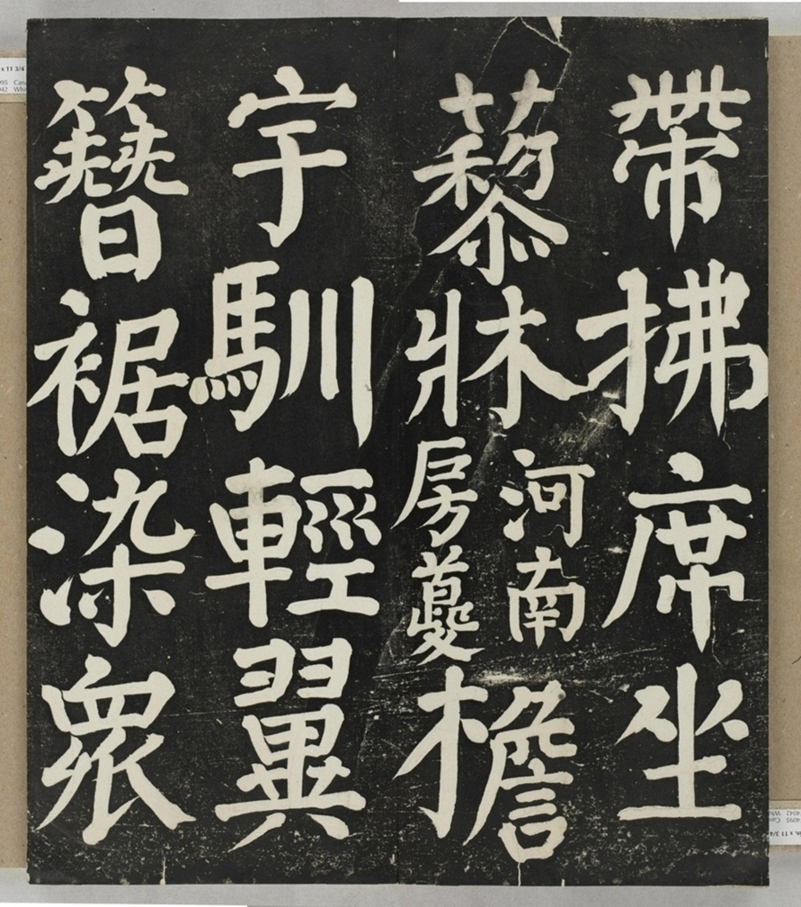 帶拂席坐
藜牀河南房蘷檐
宇馴輕翼
簪裾染衆